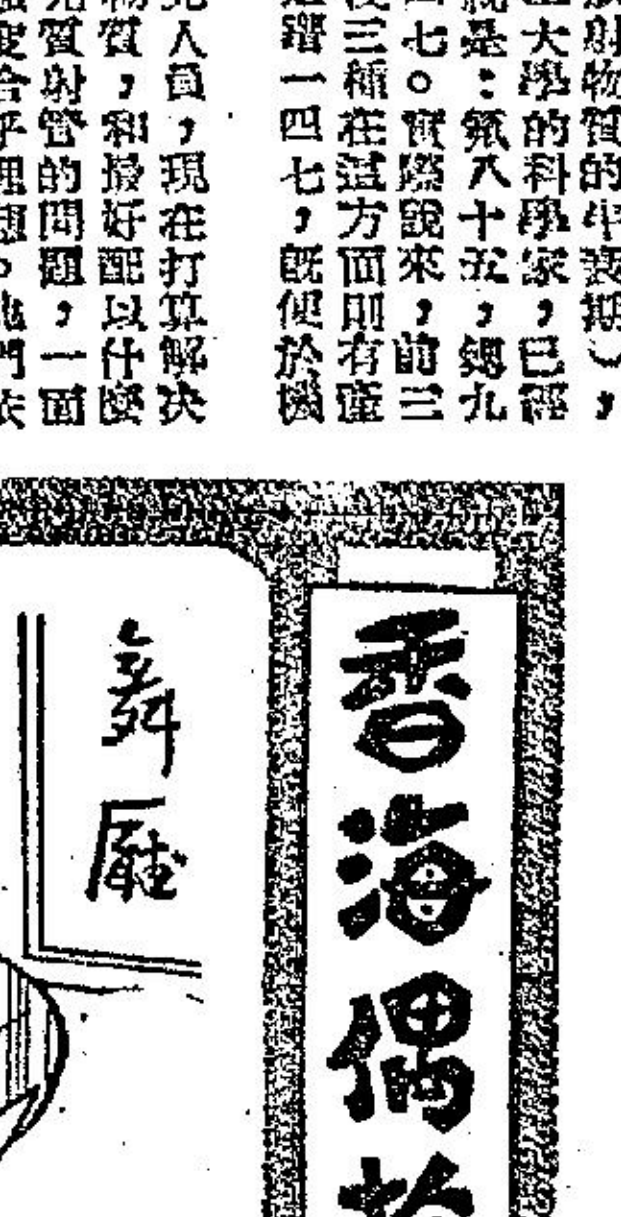 射物質的半衰期），
大學的科學家，已經
就是：氪八十五，鍶九
四七。實際說來，前三
三種在這方面則有產
一四七，既便於機
人員，現在打算解決
物質，和最好配以什麼
質射管的問題，一面
度合乎理想。他們依
香海偶拾
舞廳